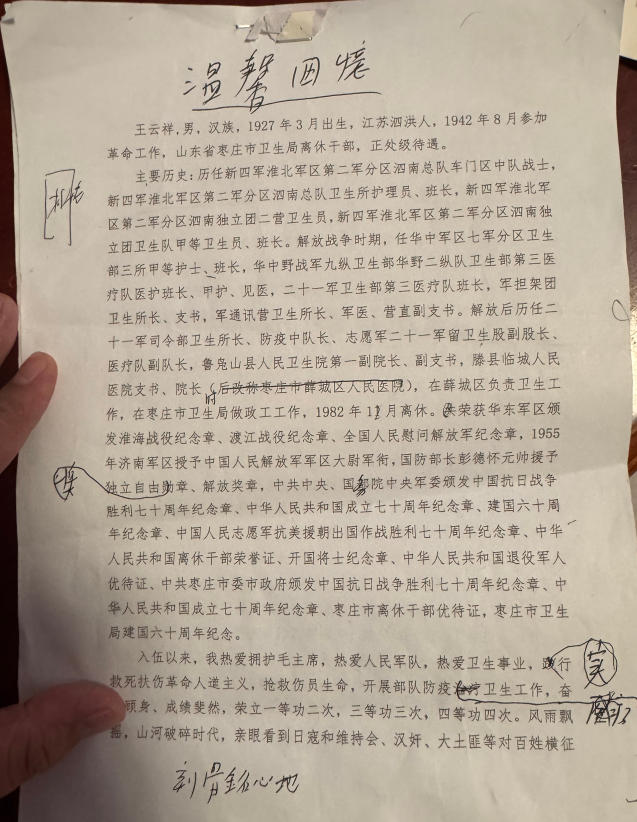 温馨回忆
王云祥,男,汉族,1927年3月出生,江苏泗洪人,1942年8月参加
革命工作,山东省枣庄市卫生局离休干部,正处级待遇。
主要历史:历任新四军淮北军区第二军分区泗南总队车门区中队战士,
新四军淮北军区第二军分区泗南总队卫生所护理员、班长,新四军淮北军
区第二军分区泗南独立团二营卫生员,新四军淮北军区第二军分区泗南独
立团卫生队甲等卫生员、班长。解放战争时期,任华中军区七军分区卫生
部三所甲等护士、班长,华中野战军九纵卫生部华野二纵队卫生部第三医
疗队医护班长、甲护、见医,二十一军卫生部第三医疗队班长,军担架团
卫生所长、支书,军通讯营卫生所长、军医、营直副支书。解放后历任二
十一军司令部卫生所长、防疫中队长、志愿军二十一军留卫生股副股长、
医疗队副队长,鲁凫山县人民卫生院第一副院长、副支书,滕县临城人民
医院支书、院长(后改称枣庄市薛城区人民医院),在薛城区负责卫生工
时
作,在枣庄市卫生局做政工工作,1982年11月离休。荣获华东军区颁
发淮海战役纪念章、渡江战役纪念章、全国人民慰问解放军纪念章,1955
年济南军区授予中国人民解放军军区大尉军衔,国防部长彭德怀元帅援予
奖
独立自由勋章、解放奖章,中共中央、国务院中央军委颁发中国抗日战争
胜利七十周年纪念章、中华人民共和国成立七十周年纪念章、建国六十周
年纪念章、中国人民志愿军抗美援朝出国作战胜利七十周年纪念章、中华
人民共和国离休干部荣誉证、开国将士纪念章、中华人民共和国退役军人
优待证、中共枣庄市委市政府颁发中国抗日战争胜利七十周年纪念章、中
华人民共和国成立七十周年纪念章、枣庄市离休干部优待证,枣庄市卫生
局建国六十周年纪念章。
入伍以来,我热爱拥护毛主席,热爱人民军队,热爱卫生事业,行
救死扶伤革命人道主义,抢救伤员生命,开展部队防疫卫生工作,奋
顾身、成绩斐然,荣立一等功二次,三等功三次,四等功四次。风雨飘
摇,山河破碎时代,亲眼看到日寇和维持会、汉奸、大土匪等对百姓横征
刻骨铭心地